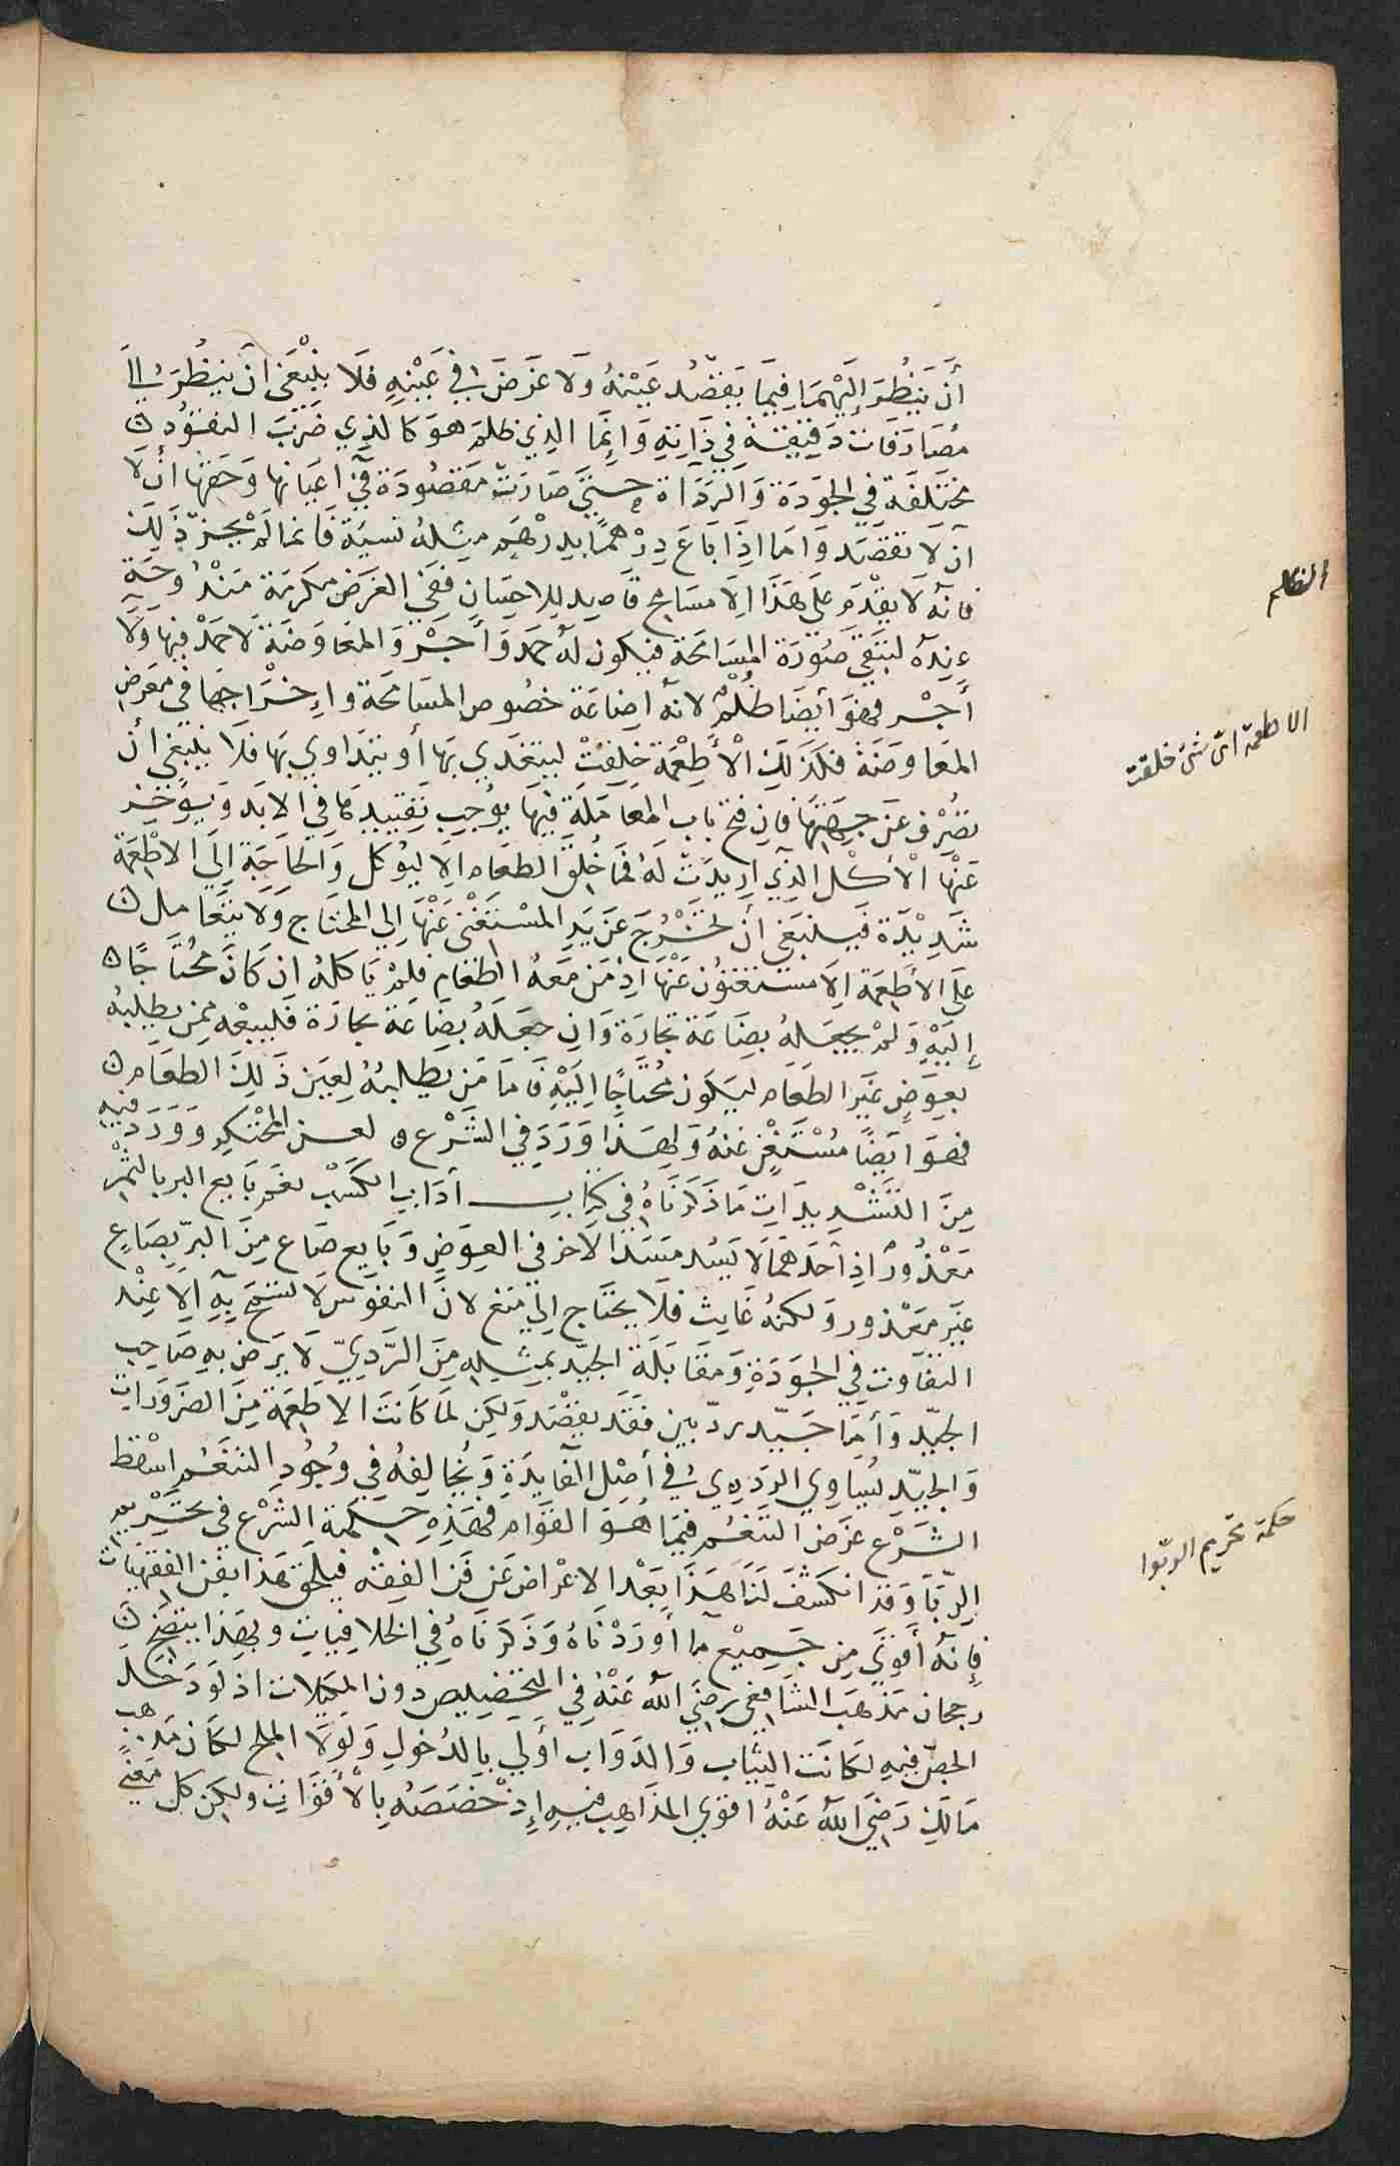 أَن يَنْظُرَ إِلَيْهِمَا فِيمَا يَقْصُد عَيْنهُ وَلَا غَرَضَ فِي عَيْنِهِ فَلَا يَنْبَغِي أن يَنظُرَ إلى
مُصَارَفَات دَقِيقَة فِي ذَاتِهِ وَإِنَّمَا الذِي ظلمَ هوَ كَالذِي ضَرَبَ النقُود
مختَلفَة فِي الجَوَدَة وَالرَّدَاة حَتَّى صَارَتْ مَقصُودَة فِي اعيَانهَا وَحَقهَا ان لا
أن لَا تقصَد وَامَا اذَا بَاعَ دِرْهَمًا بِدِرْهَم مِثلهُ نسيَة فَانما لَمْ يَجُزْ ذَلِكَ
فانهُ لَا يقْدم عَلى هَذَا الَا مسَامح قَاصِد للاحسَان فَفِي القرض مكرمَة مَنْدُوحَة
عِندَهُ لتبقَى صُورَة المسَامَحَة فيكون لهُ حَمد وَأَجْر وَالمعَاوَضَة لَا حَمد فيهَا وَلَا
أَجْر فهوَ أيْضًا ظُلْم لانهُ اضَاعَة خصُوص المسَامَحَة وَإِخْرَاجهَا فِي معرض
المعَاوَضَة فكَذَلِكَ الْأَطْعِمَة خُلِقَتْ ليتغَذي بهَا أو يتدَاوي بهَا فَلَا يَنْبَغِي أن
تصْرف عَن جهَتهَا فَإن فتح باب المعَامَلَة فيهَا يُوجب تَقييدهَا فِي الايد وَيُؤَخر
عَنْهَا الْأَكْل الذِي ارِيدَتْ لَهُ فَمَا خُلقَ الطعَام الا ليُؤكل وَالحَاجَة إِلَى الاطْعِمَة
شَدِيْدَة فَيَنْبَغِي أن تخْرُجَ عَن يَدِ المسْتَغْنِي عَنْهَا الى المحتَاج وَلَا يتعَامل
عَلى الأطعِمَة الَا مستغنُون عَنْهَا اذ مَن مَعَهُ الطعَام فلِمْ لا يَاكلهُ ان كَانَ مُحْتَاجًا
إليْهِ وَلمْ يجعَلهُ بِضَاعَة تجارَة وَان جعَلَهُ بضَاعَة تجارَة فَليبعْه ممن يطلبهُ
بعِوَضٍ غَير الطعَام ليَكون مُحتَاجًا اليْهِ فَامَا مَن يطلبهُ لِعَين ذَلِكَ الطعَام
فهوَ ايضًا مُسْتَغْن عَنهُ وَلِهَذَا وَرَدَ فِي الشَّرْع لعن المحْتكِر وَوَرَد فيه
مِنَ التَّشْدِيدَات مَا ذَكَرْنَاهُ فِي كِتَاب أدَابِ الكَسْب نعَم بَايع البر بالتمْر
مَعْذُورٌ اذ أحَدهمَا لا يَسُد مَسَد الاخر فِي العِوَضِ وَبَايع صَاع مِنَ البرِّ بِصَاعٍ
غَير مَعْذور وَلكنهُ عَابث فلَا يحتَاج إلى منع لانَّ النفوسَ لَا تسْمَح بِهِ الا عِنْد
التفَاوت فِي الجَوَدَةِ وَمقَابَلَة الجيّد بمِثلِهِ مِنَ الرَّدِيّ لَا يَرضى بِهِ صَاحِب
الجيّد وَأمَّا جَيّد برديين فقَد يقصَد وَلَكِن لمَّا كَانَتَ الاطعِمَة مِنَ الضرُورَات
وَالجيّد يُساوي الرَّدِي في أصْل الفَايدَةِ وَيُخَالِفهُ فِي وُجُودِ التنَعُّم اسْقط
الشرْع غرَض التنَعُّم فيما هُوَ القوَام فَهَذِهِ حِكمَة الشرْع في تحْرِيم
الرِّبَا وَقد انكَشَفَ لَنَا هَذَا بَعْد الاعْرَاض عَن فَن الفِقْه فيلحَق هَذا بِفَن الفقهيات
فإنهُ أقوَي مِن جَميع ما أورَدْنَاهُ وَذكرنَاهُ فِي الخلافيَات وَبِهَذا يتضح
رجحان مَذهَب الشافِعي رضيَ اللهُ عَنْهُ فِي التخصيص دون المكيلات اذ لَوَ دَخَل
الجصّ فيهِ لكانَت الثيَاب وَالدوَاب أَوْلَي بِالدُّخولِ وَلَوَلَا الملح لكَانَ مَذهب
مَالِكٍ رَضِيَ اللهُ عَنْهُ اقوَي المذَاهِب فيهِ إِذْ خَصَّصَهُ بِالْأَقوَات وَلكن كل مَعْني
الظالم
الاطعمة اىّ شئ خلقت
حكمة تحريم الربوا